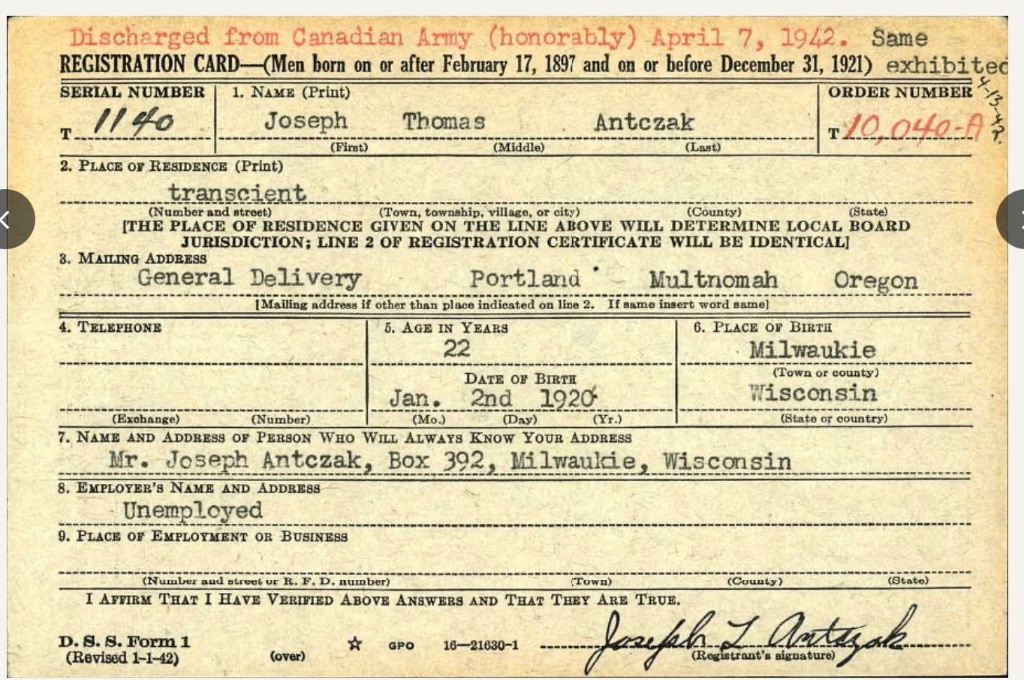 Discharged from Canadian Army (honorably) April 7, 1942. Same
REGISTRATION CARD—(Men born on or after February 17, 1897 and on or before December 31, 1921) exhibited
4-13-42.
SERIAL NUMBER 1. NAME (Print) ORDER NUMBER
T 1140 Joseph Thomas Antczak T 10,040-A
(First) (Middle) (Last)
2. PLACE OF RESIDENCE (Print)
transcient
(Number and street) (Town, township, village, or city) (County) (State)
[THE PLACE OF RESIDENCE GIVEN ON THE LINE ABOVE WILL DETERMINE LOCAL BOARD
JURISDICTION; LINE 2 OF REGISTRATION CERTIFICATE WILL BE IDENTICAL]
3. MAILING ADDRESS
General Delivery Portland Multnomah Oregon
[Mailing address if other than place indicated on line 2. If same insert word same]
4. TELEPHONE 5. AGE IN YEARS 6. PLACE OF BIRTH
22 Milwaukie
(Town or county)
DATE OF BIRTH
Jan. 2nd 1920 Wisconsin
(Exchange) (Number) (Mo.) (Day) (Yr.) (State or country)
7. NAME AND ADDRESS OF PERSON WHO WILL ALWAYS KNOW YOUR ADDRESS
Mr. Joseph Antczak, Box 392, Milwaukie, Wisconsin
8. EMPLOYER'S NAME AND ADDRESS
Unemployed
9. PLACE OF EMPLOYMENT OR BUSINESS
(Number and street or R. F. D. number) (Town) (County) (State)
I AFFIRM THAT I HAVE VERIFIED ABOVE ANSWERS AND THAT THEY ARE TRUE.
D. S. S. Form 1 Joseph T Antczak
(Revised 1-1-42) (over) ☆ GPO 16—21630-1 (Registrant's signature)